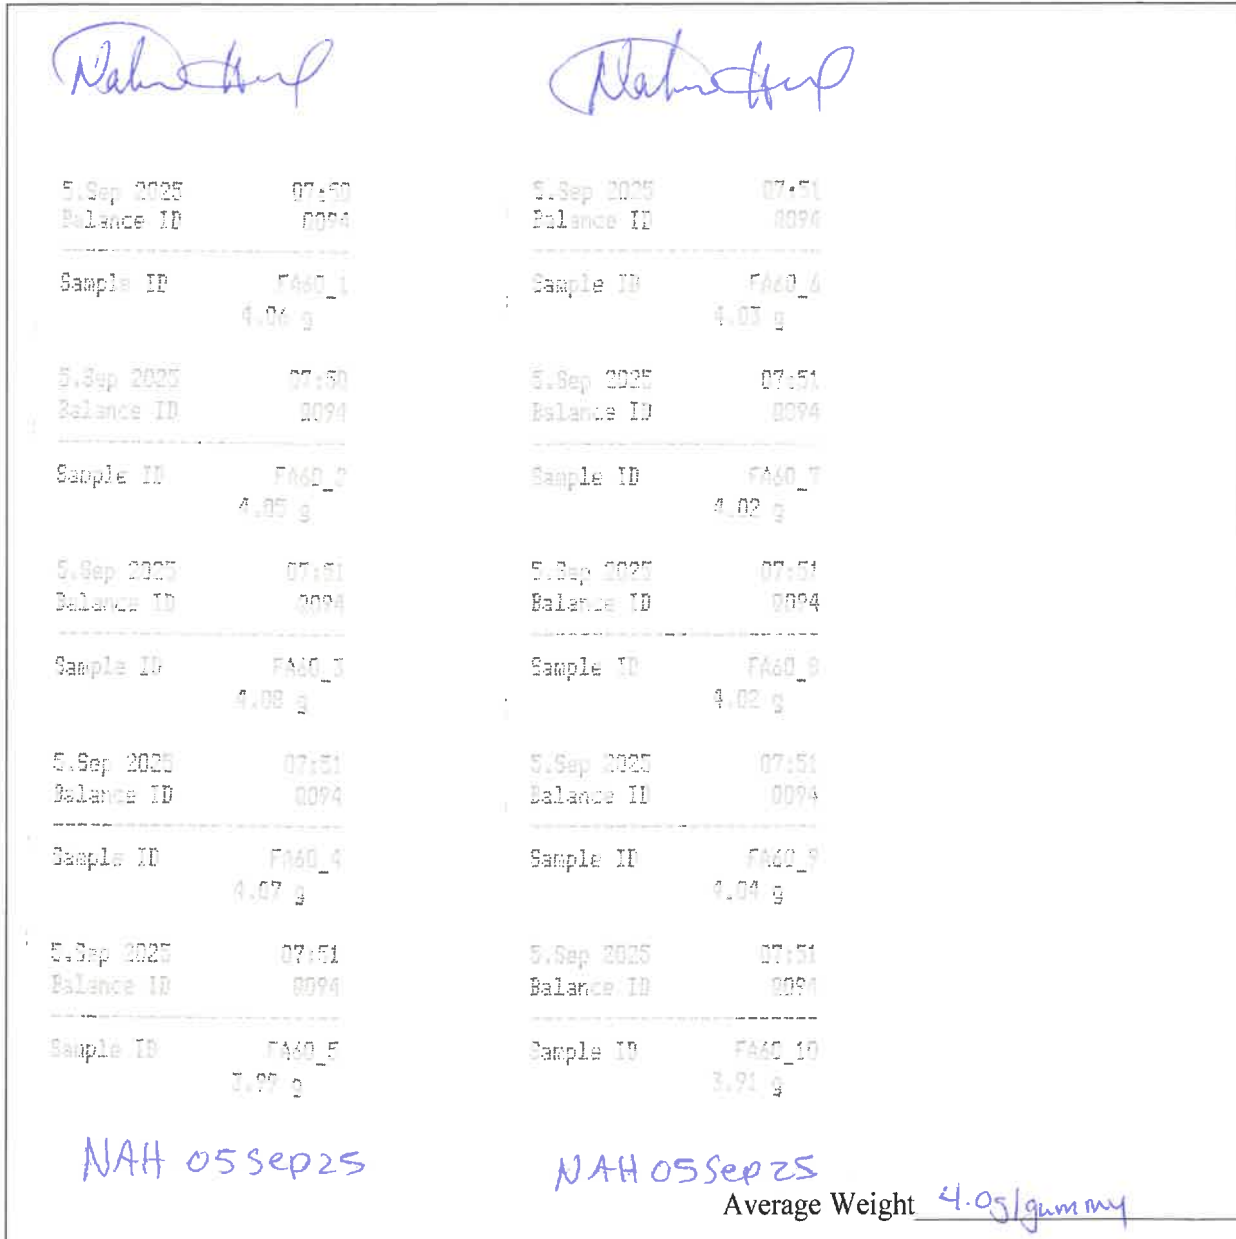 5.Sep 2025 07:50
Balance ID 0094
Sample ID FA60_1
4.06 g
5.Sep 2025 07:50
Balance ID 0094
Sample ID FA60_2
4.05 g
5.Sep 2025 07:51
Balance ID 0094
Sample ID FA60_3
4.08 g
5.Sep 2025 07:51
Balance ID 0094
Sample ID FA60_4
4.07 g
5.Sep 2025 07:51
Balance ID 0094
Sample ID FA60_5
3.97 g
NAH 05Sep25
5.Sep 2025 07:51
Balance ID 0094
Sample ID FA60_6
4.03 g
5.Sep 2025 07:51
Balance ID 0094
Sample ID FA60_7
4.02 g
5.Sep 2025 07:51
Balance ID 0094
Sample ID FA60_8
4.02 g
5.Sep 2025 07:51
Balance ID 0094
Sample ID FA60_9
4.04 g
5.Sep 2025 07:51
Balance ID 0094
Sample ID FA60_10
3.91 g
NAH 05Sep25
Average Weight 4.0g/gummy